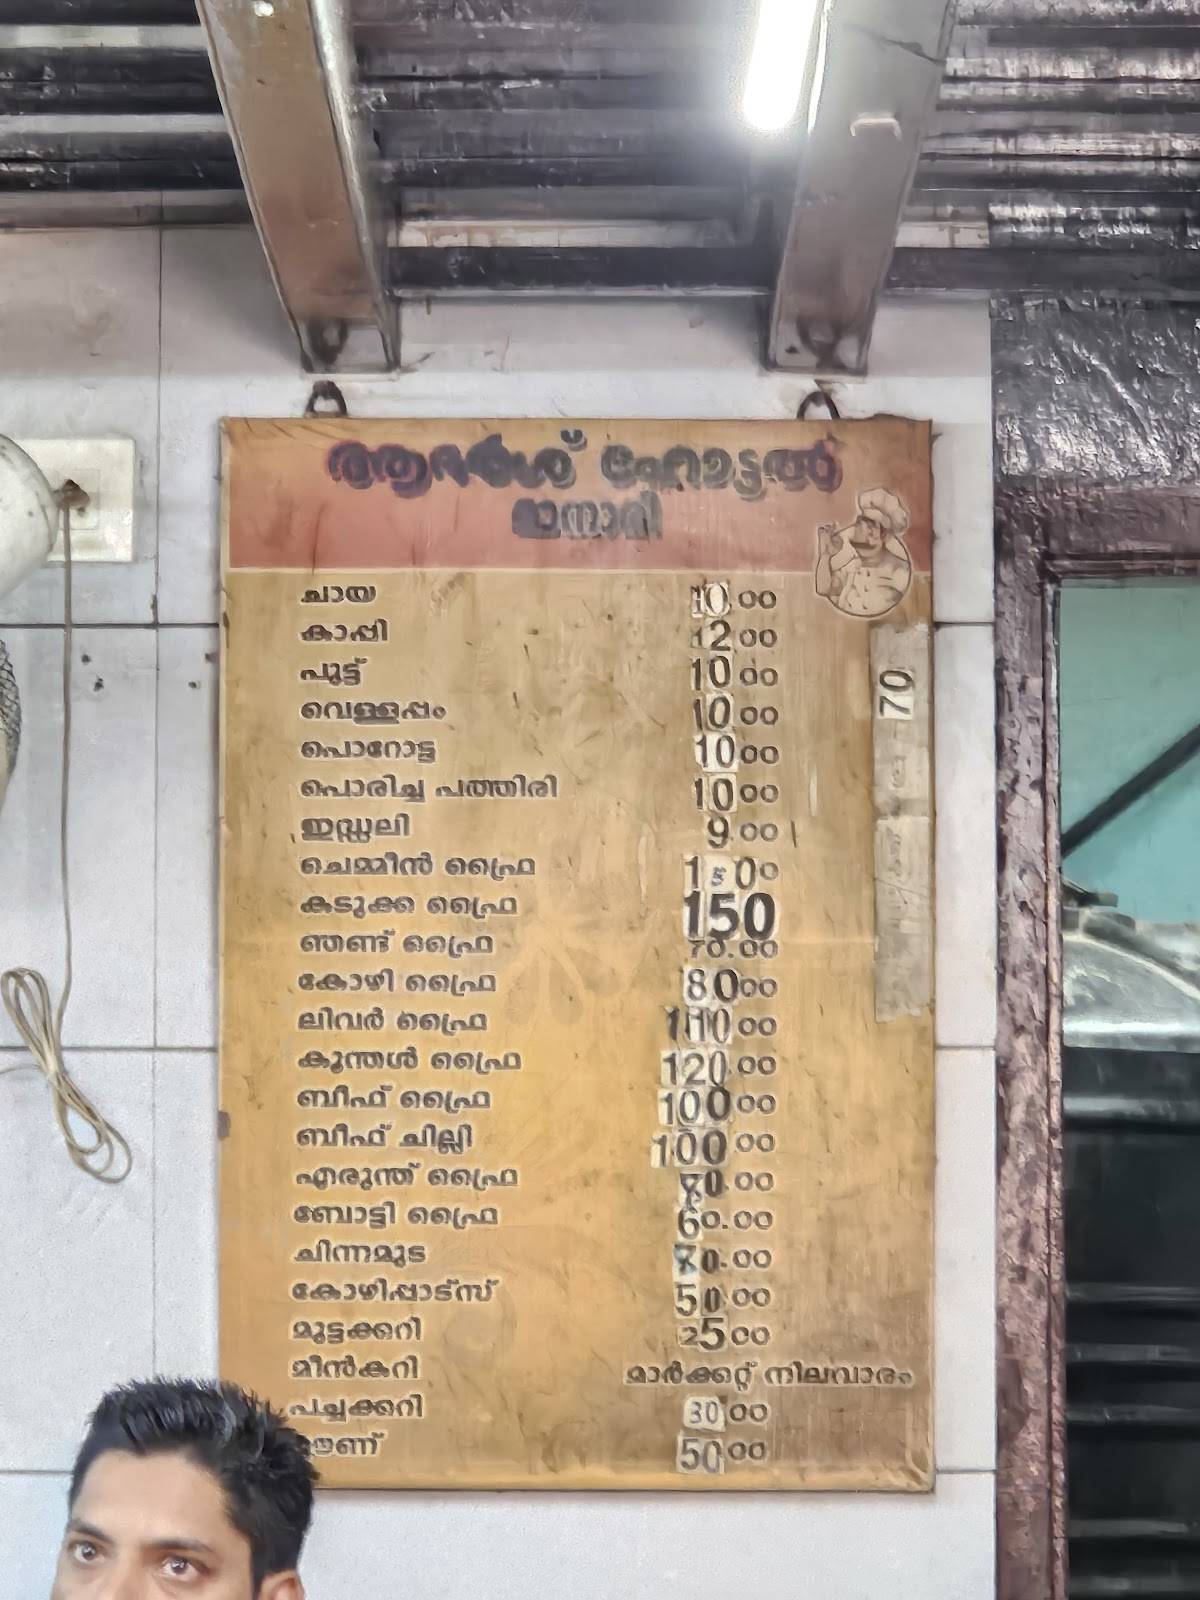 ആദർശ് ഹോട്ടൽ
ചായ 10.00
കാപ്പി 12.00
പുട്ട് 10.00
വെള്ളപ്പം 10.00
പൊറോട്ട 10.00
പൊരിച്ച പത്തിരി 10.00
ഇഡ്ഡലി 9.00
ചെമ്മീൻ ഫ്രൈ
കടുക്ക ഫ്രൈ 150
ഞണ്ട് ഫ്രൈ 70.00
കോഴി ഫ്രൈ 80.00
ലിവർ ഫ്രൈ
കൂന്തൾ ഫ്രൈ 120.00
ബീഫ് ഫ്രൈ 100.00
ബീഫ് ചില്ലി 100.00
എരുന്ത് ഫ്രൈ 80.00
ബോട്ടി ഫ്രൈ 60.00
ചിന്നമുട
കോഴിപ്പാട്സ് 50.00
മുട്ടക്കറി 25.00
മീൻകറി മാർക്കറ്റ് നിലവാരം
പച്ചക്കറി 30.00
ഊണ് 50.00
70